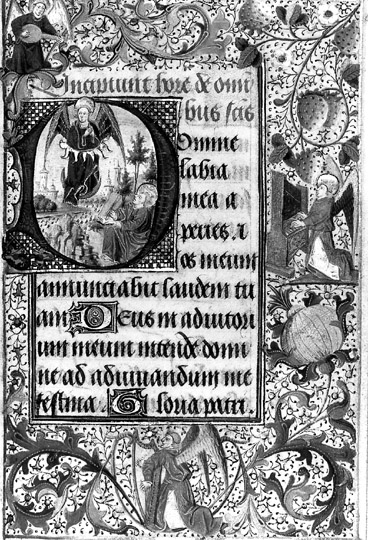 Incipiunt hore de omni
bus scis
Domine
labia
mea a
peries. &
os meum
annunciabit laudem tu
am Deus in adiutori
um meum intende domi
ne ad adiuuandum me
festina. Gloria patri.